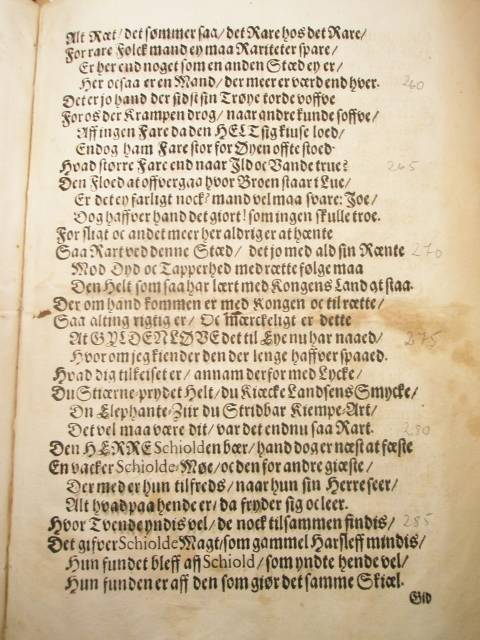 Alt Ræt/ det sømmer saa/ det Rare hos det Rare/
For rare Folck mand ey maa Rariteter spare/
Er her end noget som en anden Stæd ey er/
Her ocsaa er en Mand/ der meer er værd end hver. 260
Det er jo hand der sidst sin Trøye torde voffve
For os der Krampen drog/ naar andre kunde soffve/
Aff ingen Fare da den HELT sig kuse loed/
Endog ham Fare stor for Øyen offte stoed.
Hvad større Fare end naar Ild oc Vande true? 265
Den Floed at offvergaa hvor Broen staar i Lue/
Er det ey farligt nock? mand vel maa svare: Joe/
Dog haffver hand det giort! som ingen skulle troe.
For sligt oc andet meer her aldrig er at hænte
Saa Rart ved denne Stæd/ det jo med ald sin Rænte 270
Mod Dyd oc Tapperhed med rætte følge maa
Den Helt som saa har lært med Kongens Land at staa.
Der om hand kommen er med Kongen oc til rætte/
Saa alting rigtig er/ Oc mærckeligt er dette
At GYLDENLØVE det til Eye nu har naaed/ 275
Hvor om jeg kiender den der lenge haffver spaaed.
Hvad dig tilkeiset er/ annam derfor med Lycke/
Du Stierne-prydet Helt/ du Kiæcke Landsens Smycke/
Du Elephante-Ziir du Stridbar Kiempe-Art/
Det vel maa være dit/ var det endnu saa Rart. 280
Den HERRE Schiolden bær/ hand dog er næst at fæste
En vacker Schiolde-Møe/ oc den for andre giæste/
Der med er hun tilfreds/ naar hun sin Herre seer/
Alt hvad paa hende er/ da fryder sig oc leer.
Hvor Tvende yndis vel/ de nock tilsammen findis/ 285
Det gifver Schiolde Magt/ som gammel Harsleff mindis/
Hun fundet bleff aff Schiold/ som yndte hende vel/
Hun funden er aff den som giør det samme Skiæl.
Gid